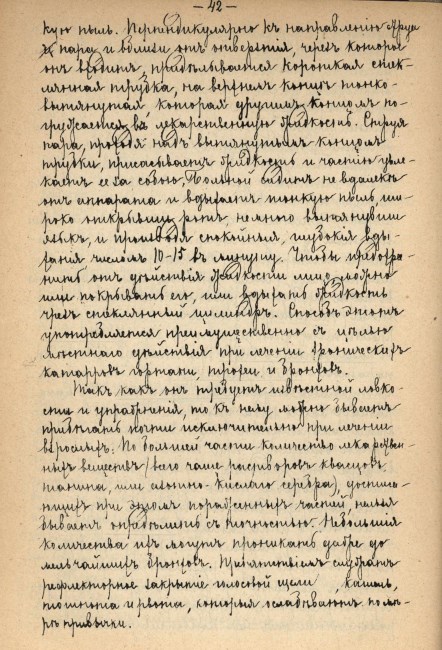 - 42 -
кую пыль. Перпендикулярно къ направленію струи
пара и вблизи отъ отверстія, черезъ которое
онъ входитъ, придѣлывается короткая стек-
лянная трубка, на верхнемъ концѣ тонко-
вытянутая, которая другимъ концомъ по-
гружается въ лекарственную жидкость. Струя
пара, проходя надъ вытянутымъ концомъ
трубки, присасываетъ жидкость и частію увле-
каетъ ее за собою. Больной сидитъ не вдалекѣ
отъ аппарата и вдыхаетъ тонкую пыль, ши-
роко открывши ротъ, немного вытянувши
языкъ, и производя спокойныя, глубокія вды-
ханія числомъ 10-15 въ минуту. Чтобы предохра-
нить отъ дѣйствія жидкости лицо, можно
или покрывать его, или вдыхать жидкость
чрезъ стеклянный цилиндръ. Способъ этотъ
употребляется преимущественно съ цѣлью
мѣстнаго дѣйствія при леченіи хроническихъ
катарровъ гортани, трахеи и бронховъ.
Такъ какъ онъ требуетъ извѣстной ловко-
сти и упражненія, то къ нему можно бываетъ
прибѣгать почти исключительно при леченіи
взрослыхъ. По большей части количество лекарствен-
ныхъ веществъ (всего чаще растворовъ квасцовъ,
танина, или азотно-кислаго серебра), достига-
ющихъ при этомъ пораженныхъ частей, нельзя
бываетъ опредѣлить съ точностью. Небольшія
количества ихъ могутъ проникать даже до
мельчайшихъ бронховъ. Препятствіемъ служатъ
рефлекторное закрытіе голосовой щели, кашель,
тошнота и рвота, которыя ослабѣваютъ по мѣ-
рѣ привычки.